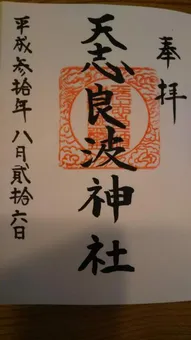 奉拝
天志良波神社
平成参拾年八月貳拾六日